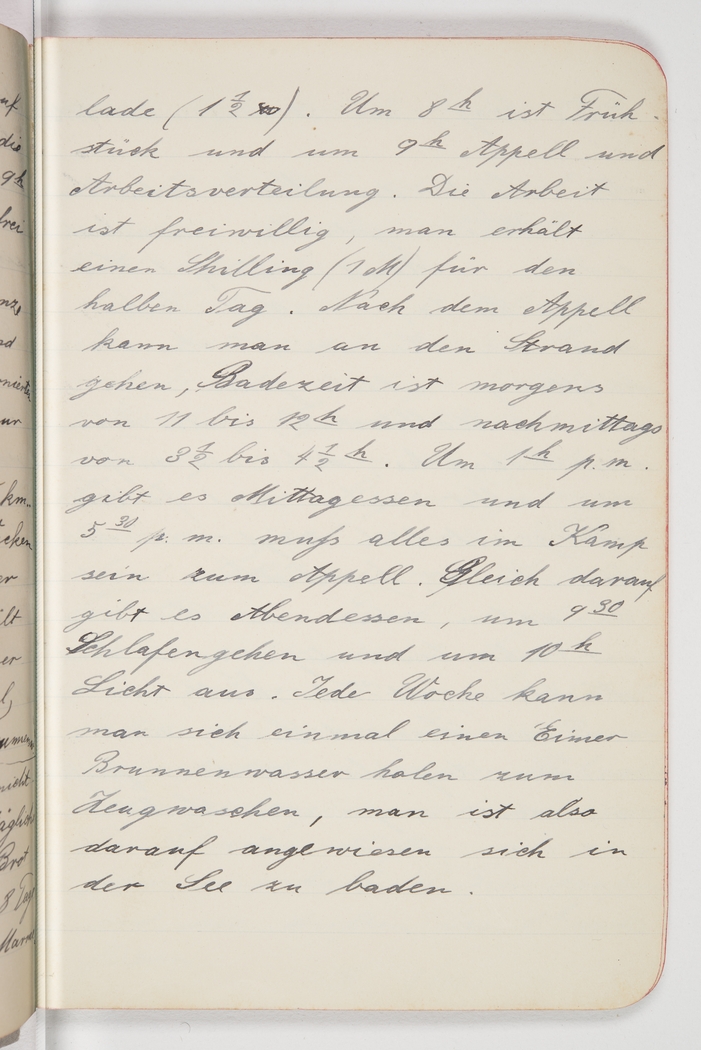 lade (1 1/2 ℔). Um 8 h ist Früh-
stück und um 9 h Appell und
Arbeitsverteilung. Die Arbeit
ist freiwillig, man erhält
einen Shilling (1 M) für den
halben Tag. Nach dem Appell
kann man an den Strand
gehen, Badezeit ist morgens
von 11 bis 12 h und nachmittags
von 3 1/2 bis 4 1/2 h. Um 1 h p.m.
gibt es Mittagessen und um
5 30 p.m. muſs alles im Kamp
sein zum Appell. Gleich darauf
gibt es Abendessen, um 9 30
Schlafengehen und um 10 h
Licht aus. Jede Woche kann
man sich einmal einen Eimer
Brunnenwasser holen zum
Zeugwaschen, man ist also
darauf angewiesen sich in
der See zu baden.